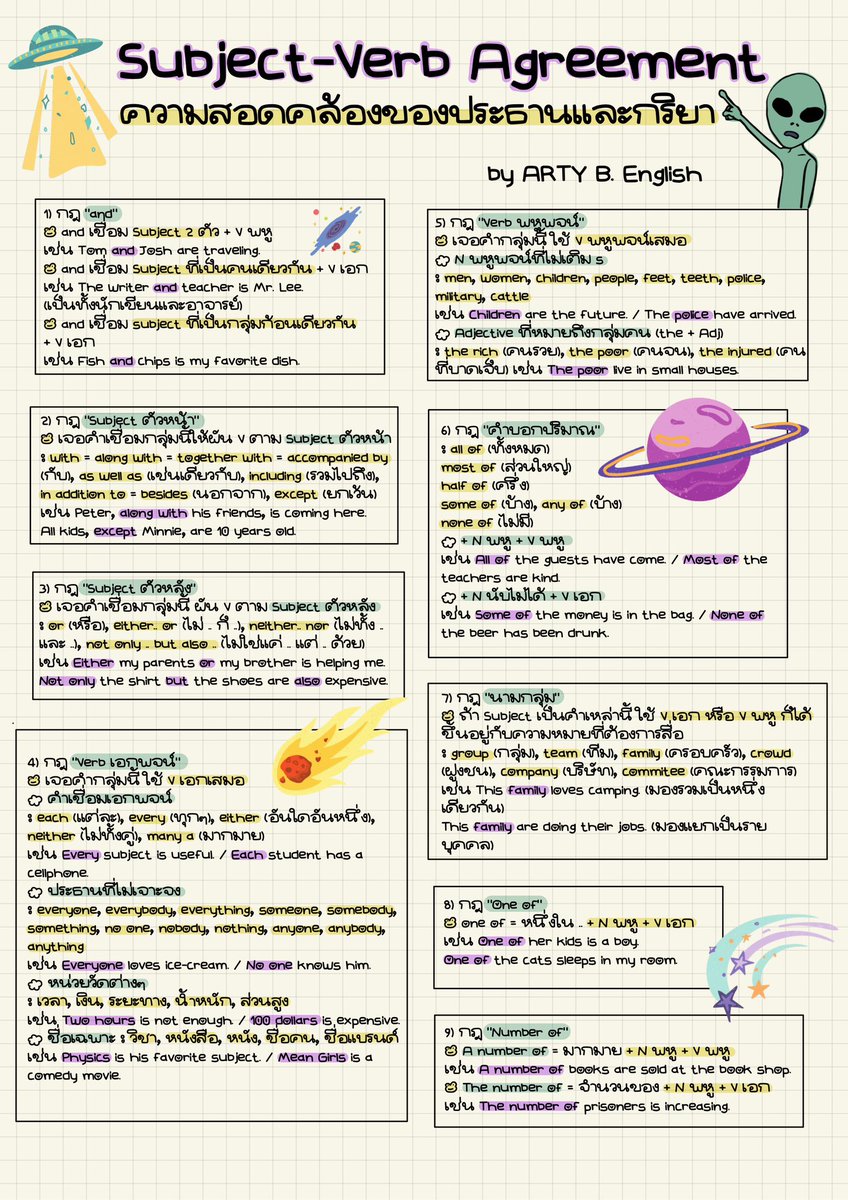 Subject-Verb Agreement
ความสอดคล้องของประธานและกริยา
by ARTY B. English
1) กฎ "and"
and เชื่อม Subject 2 ตัว + V พหู
เช่น Tom and Josh are traveling.
and เชื่อม Subject ที่เป็นคนเดียวกัน + V เอก
เช่น The writer and teacher is Mr. Lee.
(เป็นทั้งนักเขียนและอาจารย์)
and เชื่อม Subject ที่เป็นกลุ่มก้อนเดียวกัน
+ V เอก
เช่น Fish and chips is my favorite dish.
2) กฎ "Subject ตัวหน้า"
เจอคำเชื่อมกลุ่มนี้ให้ผัน V ตาม Subject ตัวหน้า
: with = along with = together with = accompanied by
(กับ), as well as (เช่นเดียวกับ), including (รวมไปถึง),
in addition to = besides (นอกจาก), except (ยกเว้น)
เช่น Peter, along with his friends, is coming here.
All kids, except Minnie, are 10 years old.
3) กฎ "Subject ตัวหลัง"
เจอคำเชื่อมกลุ่มนี้ ผัน V ตาม Subject ตัวหลัง
: or (หรือ), either.. or ไม่ .. ก็ ..), neither.. nor ไม่ทั้ง ..
และ ..), not only .. but also .. (ไม่ใช่แค่ .. แต่ .. ด้วย)
เช่น Either my parents or my brother is helping me.
Not only the shirt but the shoes are also expensive.
4) กฎ "Verb เอกพจน์"
เจอคำกลุ่มนี้ ใช้ V เอกเสมอ
คำเชื่อมเอกพจน์
: each (แต่ละ), every (ทุกๆ), either (อันใดอันหนึ่ง),
neither ไม่ทั้งคู่), many a (มากมาย)
เช่น Every subject is useful. / Each student has a
cellphone.
ประธานที่ไม่เจาะจง
: everyone, everybody, everything, someone, somebody,
something, no one, nobody, nothing, anyone, anybody,
anything
เช่น Everyone loves ice-cream. / No one knows him.
หน่วยวัดต่างๆ
: เวลา, เงิน, ระยะทาง, น้ำหนัก, ส่วนสูง
เช่น Two hours is not enough. / 100 dollars is expensive.
ชื่อเฉพาะ : วิชา, หนังสือ, หนัง, ชื่อคน, ชื่อแบรนด์
เช่น Physics is his favorite subject. / Mean Girls is a
comedy movie.
5) กฎ "Verb พหูพจน์"
เจอคำกลุ่มนี้ ใช้ V พหูพจน์เสมอ
N พหูพจน์ที่ไม่เติม s
: men, women, children, people, feet, teeth, police,
military, cattle
เช่น Children are the future. / The police have arrived.
Adjective ที่หมายถึงกลุ่มคน (the + Adj)
: the rich (คนรวย), the poor (คนจน), the injured (คน
ที่บาดเจ็บ) เช่น The poor live in small houses.
6) กฎ "คำบอกปริมาณ"
: all of (ทั้งหมด)
most of (ส่วนใหญ่)
half of (ครึ่ง)
some of (บ้าง), any of (บ้าง)
none of (ไม่มี)
+ N พหู + V พหู
เช่น All of the guests have come. / Most of the
teachers are kind.
+ N นับไม่ได้ + V เอก
เช่น Some of the money is in the bag. / None of
the beer has been drunk.
7) กฎ "นามกลุ่ม"
ถ้า Subject เป็นคำเหล่านี้ ใช้ V เอก หรือ V พหู ก็ได้
ขึ้นอยู่กับความหมายที่ต้องการสื่อ
: group (กลุ่ม), team (ทีม), family (ครอบครัว), crowd
(ฝูงชน), company (บริษัท), commitee (คณะกรรมการ)
เช่น This family loves camping. (มองรวมเป็นหนึ่ง
เดียวกัน)
This family are doing their jobs. (มองแยกเป็นราย
บุคคล)
8) กฎ "One of"
one of = หนึ่งใน .. + N พหู + V เอก
เช่น One of her kids is a boy.
One of the cats sleeps in my room.
9) กฎ "Number of"
A number of = มากมาย + N พหู + V พหู
เช่น A number of books are sold at the book shop.
The number of = จำนวนของ + N พหู + V เอก
เช่น The number of prisoners is increasing.